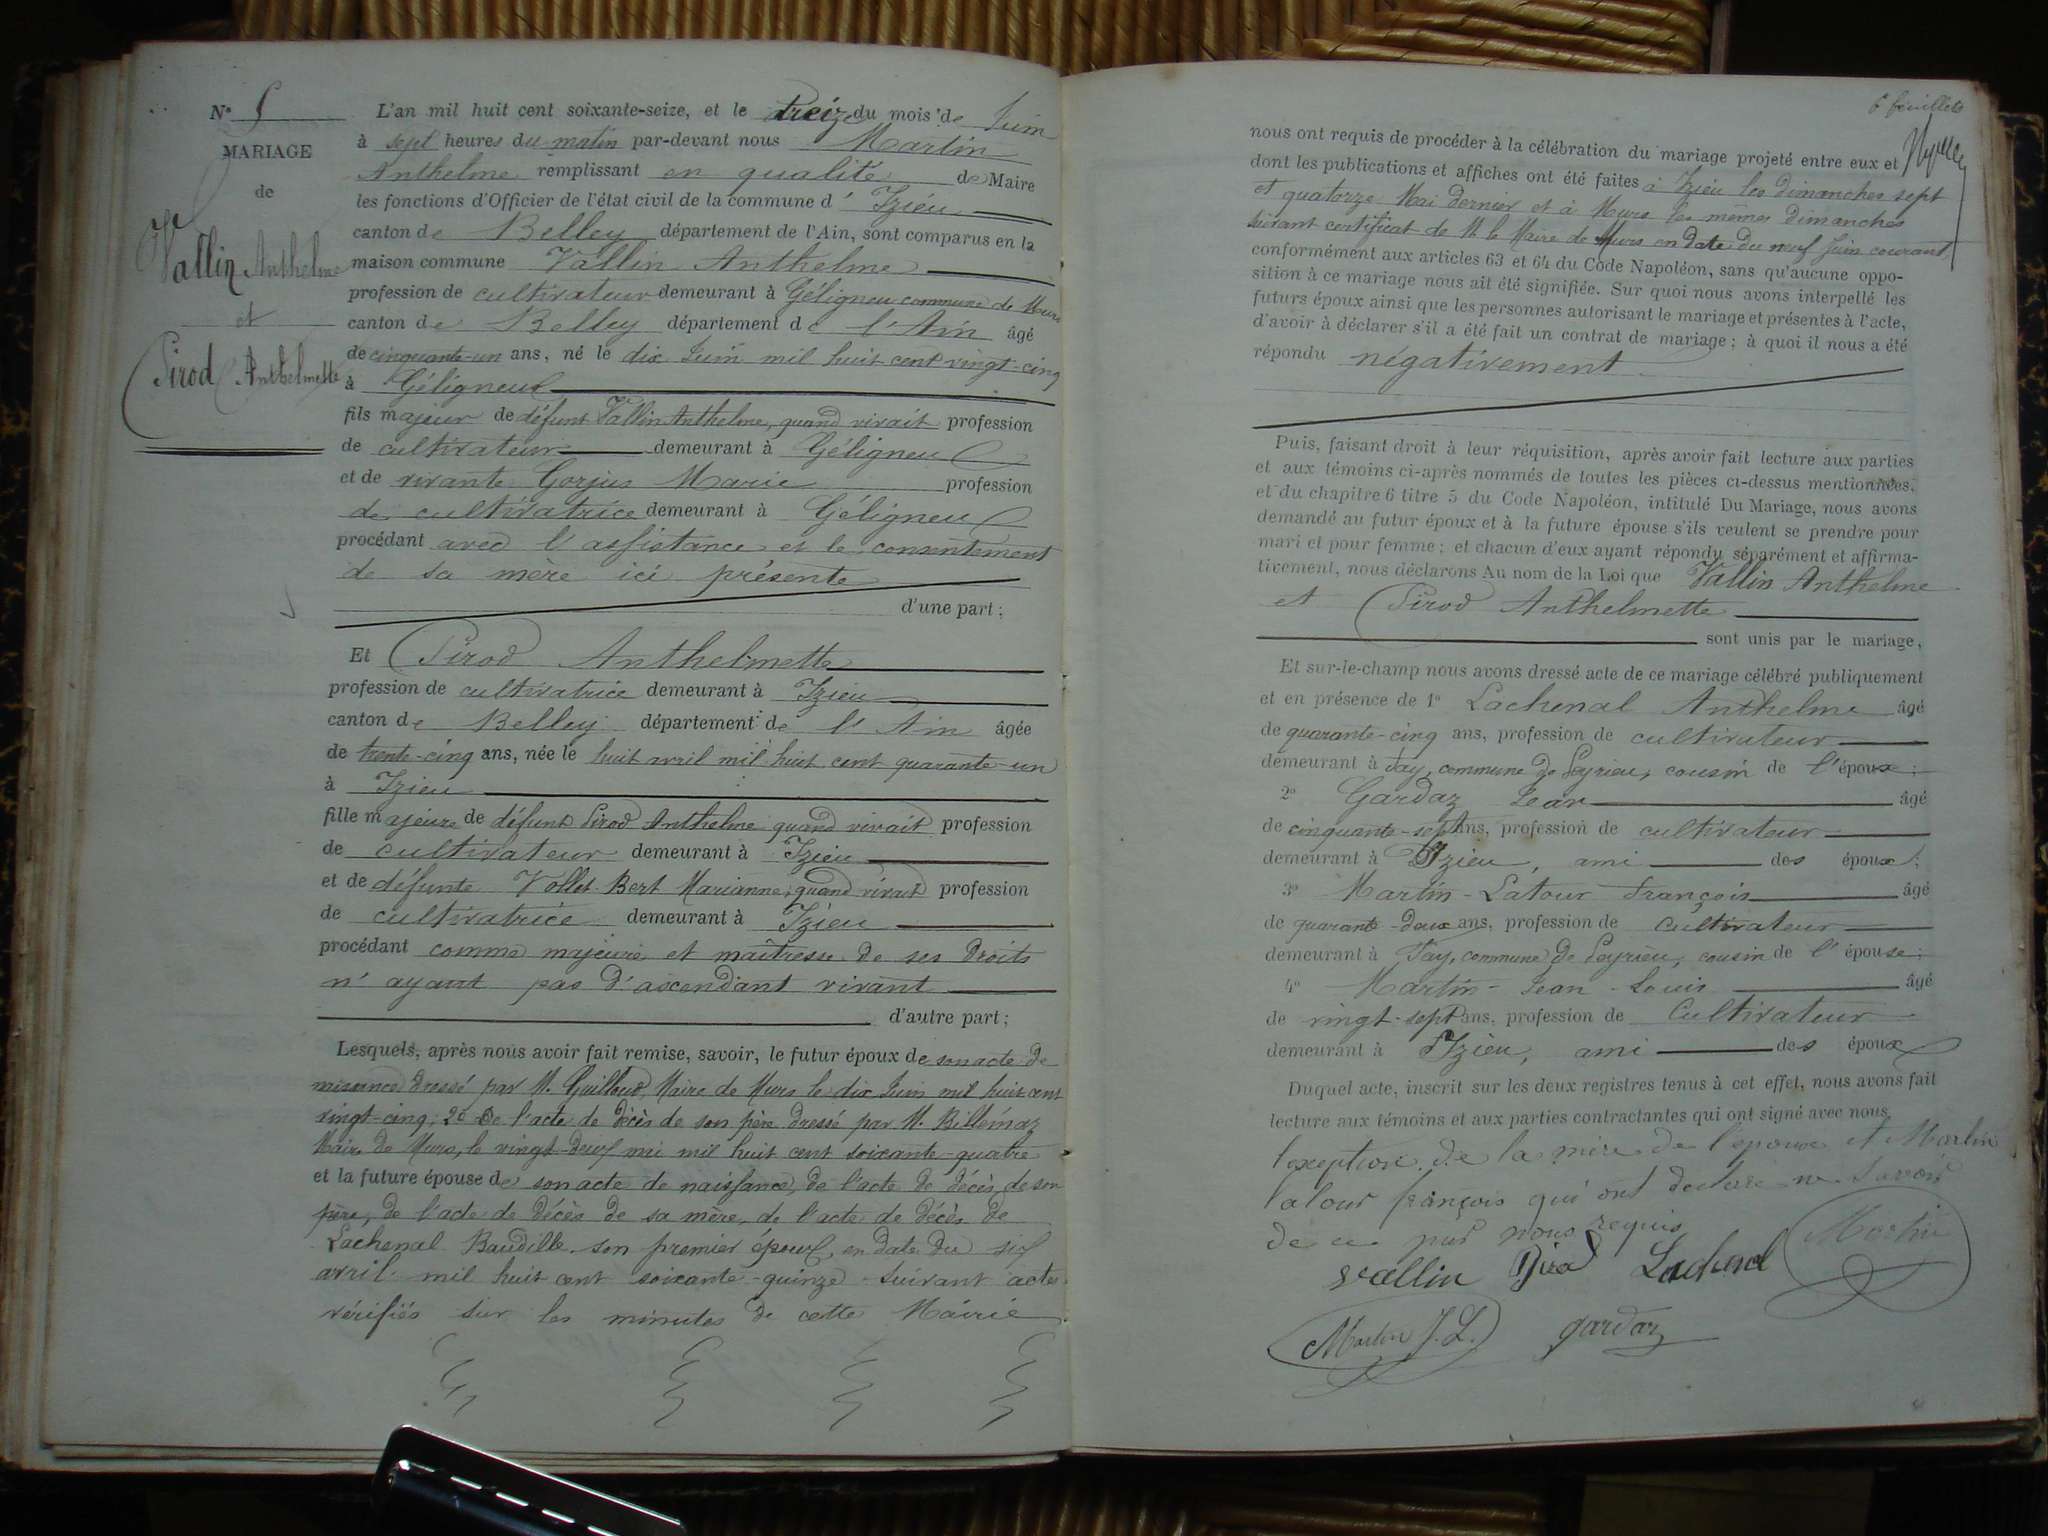 N° 5
MARIAGE
de
Vallin Anthelme
et
Pirod Anthelmette
L'an mil huit cent soixante-seize, et le treize du mois de Juin
à sept heures du matin par-devant nous Martin
Anthelme remplissant en qualité de Maire
les fonctions d'Officier de l'état civil de la commune d' Izieu
canton de Belley département de l'Ain, sont comparus en la
maison commune Vallin Anthelme
profession de cultivateur demeurant à Géligneu commune de Murs
canton de Belley département de l'Ain âgé
de cinquante-un ans, né le dix Juin mil huit cent vingt-cinq
à Géligneux
fils majeur de défunt Vallin Anthelme, quand vivait profession
de cultivateur demeurant à Géligneu
et de vivante Gorjus Marie profession
de cultivatrice demeurant à Géligneu
procédant avec l'assistance et le consentement
de sa mère ici présente
d'une part;
Et Pirod Anthelmette
profession de cultivatrice demeurant à Izieu
canton de Belley département de l'Ain âgée
de trente-cinq ans, née le huit avril mil huit cent quarante-un
à Izieu
fille majeure de défunt Pirod Anthelme quand vivait profession
de cultivateur demeurant à Izieu
et de défunte Vollet-Bert Marianne, quand vivait profession
de cultivatrice demeurant à Izieu
procédant comme majeure et maîtresse de ses droits
n'ayant pas d'ascendant vivant
d'autre part;
Lesquels, après nous avoir fait remise, savoir, le futur époux de son acte de
naissance dressé par M. Guilloud, Maire de Murs le dix Juin mil huit cent
vingt-cinq; 2o De l'acte de décès de son père dressé par M. Billémaz
Maire de Murs, le vingt-deux mai mil huit cent soixante-quatre
et la future épouse de son acte de naissance, de l'acte de décès de son
père, de l'acte de décès de sa mère, de l'acte de décès de
Lachenal Baudille son premier époux, en date du six
avril mil huit cent soixante-quinze suivant actes
vérifiés sur les minutes de cette Mairie
6e feuillet
nous ont requis de procéder à la célébration du mariage projeté entre eux et
dont les publications et affiches ont été faites à Izieu les dimanches sept
et quatorze Mai dernier et à Murs les mêmes dimanches
suivant certificat de M. le Maire de Murs en date du neuf Juin courant
conformément aux articles 63 et 64 du Code Napoléon, sans qu'aucune oppo-
sition à ce mariage nous ait été signifiée. Sur quoi nous avons interpellé les
futurs époux ainsi que les personnes autorisant le mariage et présentes à l'acte,
d'avoir à déclarer s'il a été fait un contrat de mariage; à quoi il nous a été
répondu négativement
Puis, faisant droit à leur réquisition, après avoir fait lecture aux parties
et aux témoins ci-après nommés de toutes les pièces ci-dessus mentionnées.
et du chapitre 6 titre 5 du Code Napoléon, intitulé Du Mariage, nous avons
demandé au futur époux et à la future épouse s'ils veulent se prendre pour
mari et pour femme; et chacun d'eux ayant répondu séparément et affirma-
tivement, nous déclarons Au nom de la Loi que Vallin Anthelme
et Pirod Anthelmette
sont unis par le mariage,
Et sur-le-champ nous avons dressé acte de ce mariage célébré publiquement
et en présence de 1° Lachenal Anthelme âgé
de quarante-cinq ans, profession de cultivateur
demeurant à Fay, commune de Peyrieu, cousin de l'époux;
2° Gardaz Jean âgé
de cinquante-sept ans, profession de cultivateur
demeurant à Izieu, ami des époux;
3° Martin-Latour François âgé
de quarante-deux ans, profession de Cultivateur
demeurant à Fay, commune de Peyrieu, cousin de l'épouse;
4° Martin-Jean-Louis âgé
de vingt-sept ans, profession de Cultivateur
demeurant à Izieu, ami des époux
Duquel acte, inscrit sur les deux registres tenus à cet effet, nous avons fait
lecture aux témoins et aux parties contractantes qui ont signé avec nous,
l'exeption de la mère de l'epoux et Martin
latour françois qui ont déclaré ne savoir
de ce par nous requis
Vallin Piro Lachenal Martin
Martin J. L. gardaz